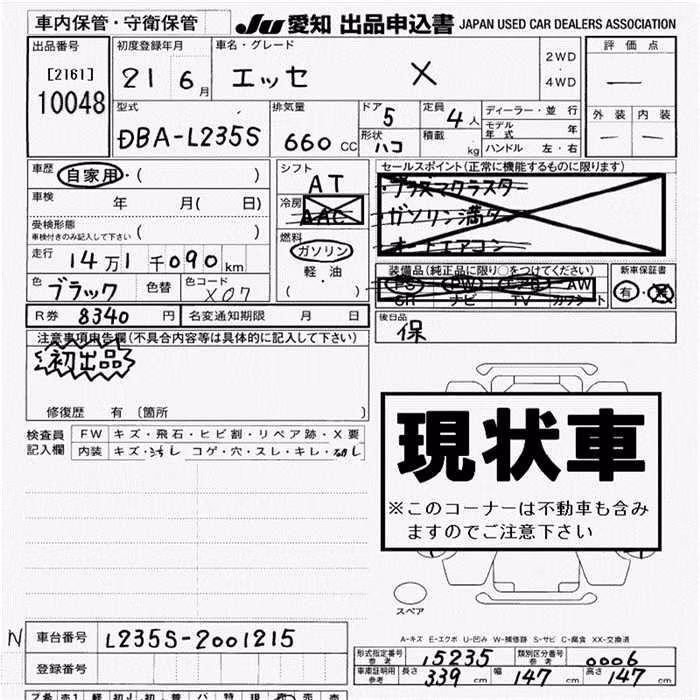 車内保管・守衛保管 JU 愛知 出品申込書 JAPAN USED CAR DEALERS ASSOCIATION
出品番号 初度登録年月 車名・グレード 評価点
[2161] 21 6月 エッセ X 2WD・4WD —
10048
型式 排気量 ドア 5 定員 4人 ディーラー・並行 外装 内装
モデル年式 年 — —
DBA-L235S 660 CC 形状 ハコ 積載 kg ハンドル 左・右
車歴 自家用・( ) シフト AT セールスポイント(正常に機能するものに限ります)
車検 年 月( 日) 冷房 AAC ・プラズマクラスター
・ガソリン満タン
受検形態 ( )
車検付きのみ記入して下さい
燃料 ガソリン ・オートエアコン
走行 14万1千090km 軽・油
( )
装備品(純正品に限り○をつけてください) 新車保証書
色 ブラック 色替 色コード X07 PS PW エアB AW 有・無
SR ナビ TV カワシート
R券 8340円 名変通知期限 月 日 後日品
保
注意事項申告欄(不具合内容等は具体的に記入して下さい)
初出品
修復歴 有 〔箇所 〕
検査員 FW キズ・飛石・ヒビ割・リペア跡・X要
記入欄 内装 キズ・汚し コゲ・穴・スレ・キレ・
現状車
※このコーナーは不動車も含み
ますのでご注意下さい
スペア
A-キズ E-エクボ U-凹み W-補修跡 S-サビ C-腐食 XX-交換済
N 車台番号 L235S-2001215
形式指定番号 参考 15235 類別区分番号 参考 0006
登録番号
車庫証明用 参考 長さ 339 cm 幅 147 cm 高さ 147 cm